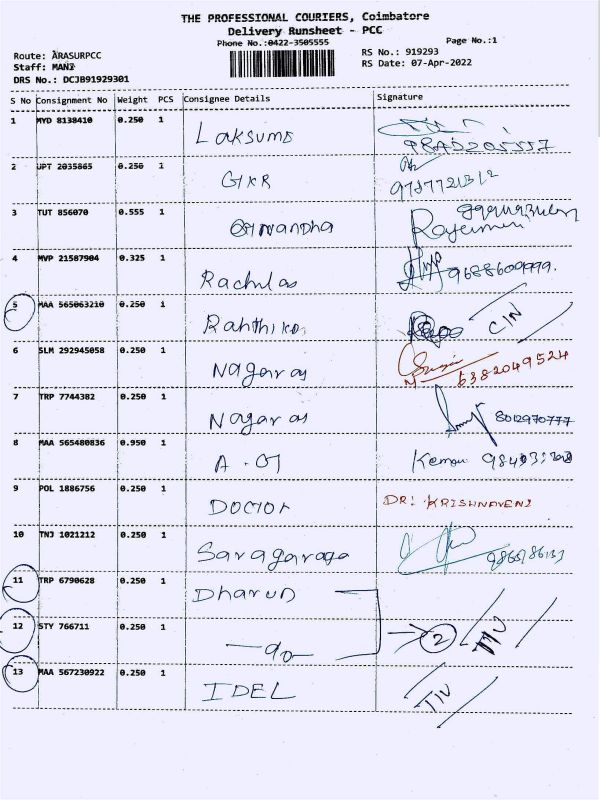 THE PROFESSIONAL COURIERS, Coimbatore
Delivery Runsheet - PCC
Phone No.:0422-3505555
Page No.:1
Route: ARASURPCC
RS No.: 919293
Staff: MANI
RS Date: 07-Apr-2022
DRS No.: DCJB91929301
S No Consignment No Weight PCS Consignee Details Signature
1 MYD 8138410 0.250 1
2 JPT 2035865 0.250 1 GIKR
3 TUT 856070 0.555 1
4 MVP 21587904 0.325 1 9688609999.
5 MAA 565063210 0.250 1 CIN
6 SLM 292945058 0.250 1 Nagaras 6382049524
7 TRP 7744382 0.250 1 Nagaras 8012970777
8 MAA 565480836 0.950 1
9 POL 1886756 0.250 1 DOCTOR DR: KRISHNAVENI
10 TNJ 1021212 0.250 1 Saragaraga
11 TRP 6790628 0.250 1 Dharun
12 STY 766711 0.250 1 2
13 MAA 567230922 0.250 1 IDEL